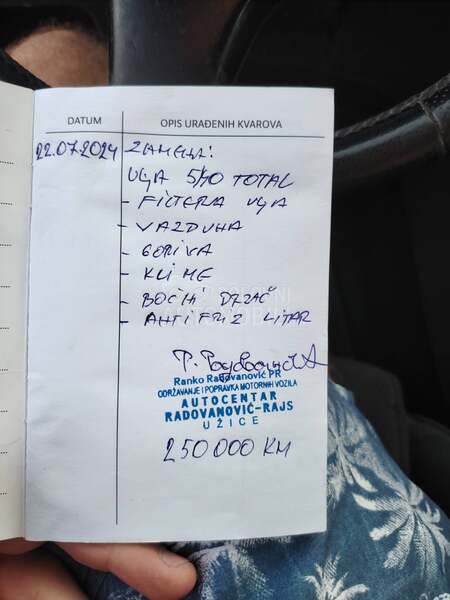 DATUM
OPIS URAĐENIH KVAROVA
22.07.2024
ZAMENA:
ULJA 5/40 TOTAL
- FILTERA ULJA
- VAZDUHA
- GORIVA
- KLIME
- BOČNI DRŽAČ
- ANTIFRIZ LITAR
Ranko Radovanović PR
ODRŽAVANJE I POPRAVKA MOTORNIH VOZILA
AUTOCENTAR
RADOVANOVIĆ-RAJS
UŽICE
250 000 KM